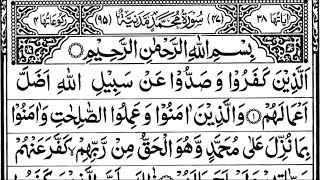 اٰیَاتُهَا ۳۸ (۴۷) سُوْرَةُ مُحَمَّدٍ مَّدَنِیَّةٌ (۹۵) رُکُوْعَاتُهَا ۴
بِسْمِ اللّٰهِ الرَّحْمٰنِ الرَّحِیْمِ
اَلَّذِیْنَ کَفَرُوْا وَصَدُّوْا عَنْ سَبِیْلِ اللّٰهِ اَضَلَّ
اَعْمَالَهُمْ ۝۱ وَالَّذِیْنَ اٰمَنُوْا وَعَمِلُوا الصّٰلِحٰتِ وَاٰمَنُوْا
بِمَا نُزِّلَ عَلٰی مُحَمَّدٍ وَّهُوَ الْحَقُّ مِنْ رَّبِّهِمْ کَفَّرَ عَنْهُمْ